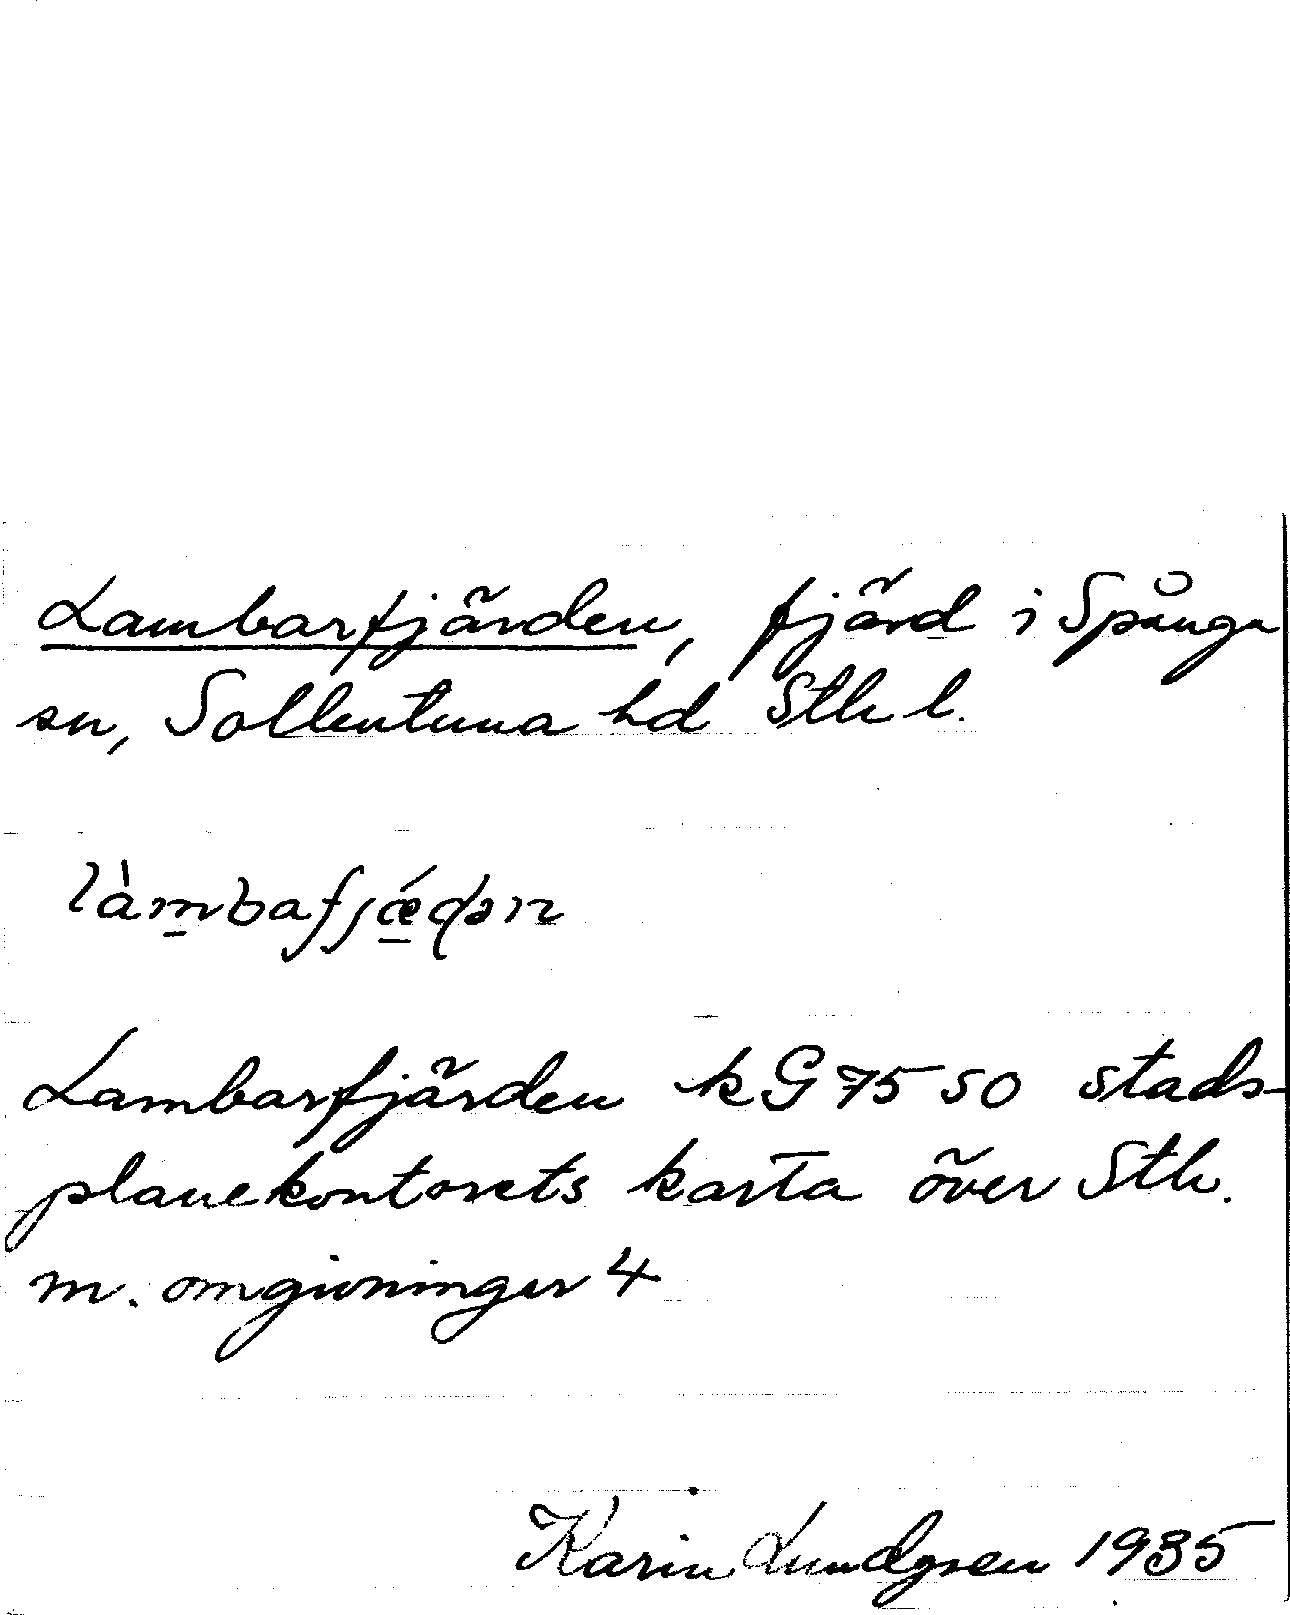 Lambarfjärden, fjärd i Spånga
sn, Sollentuna hd Sthl.
làmbafjǽdən
Lambarfjärden kG 75 50 stads-
planekontorets karta över Sth.
m. omgivningar 4
Karin Lundgren 1935